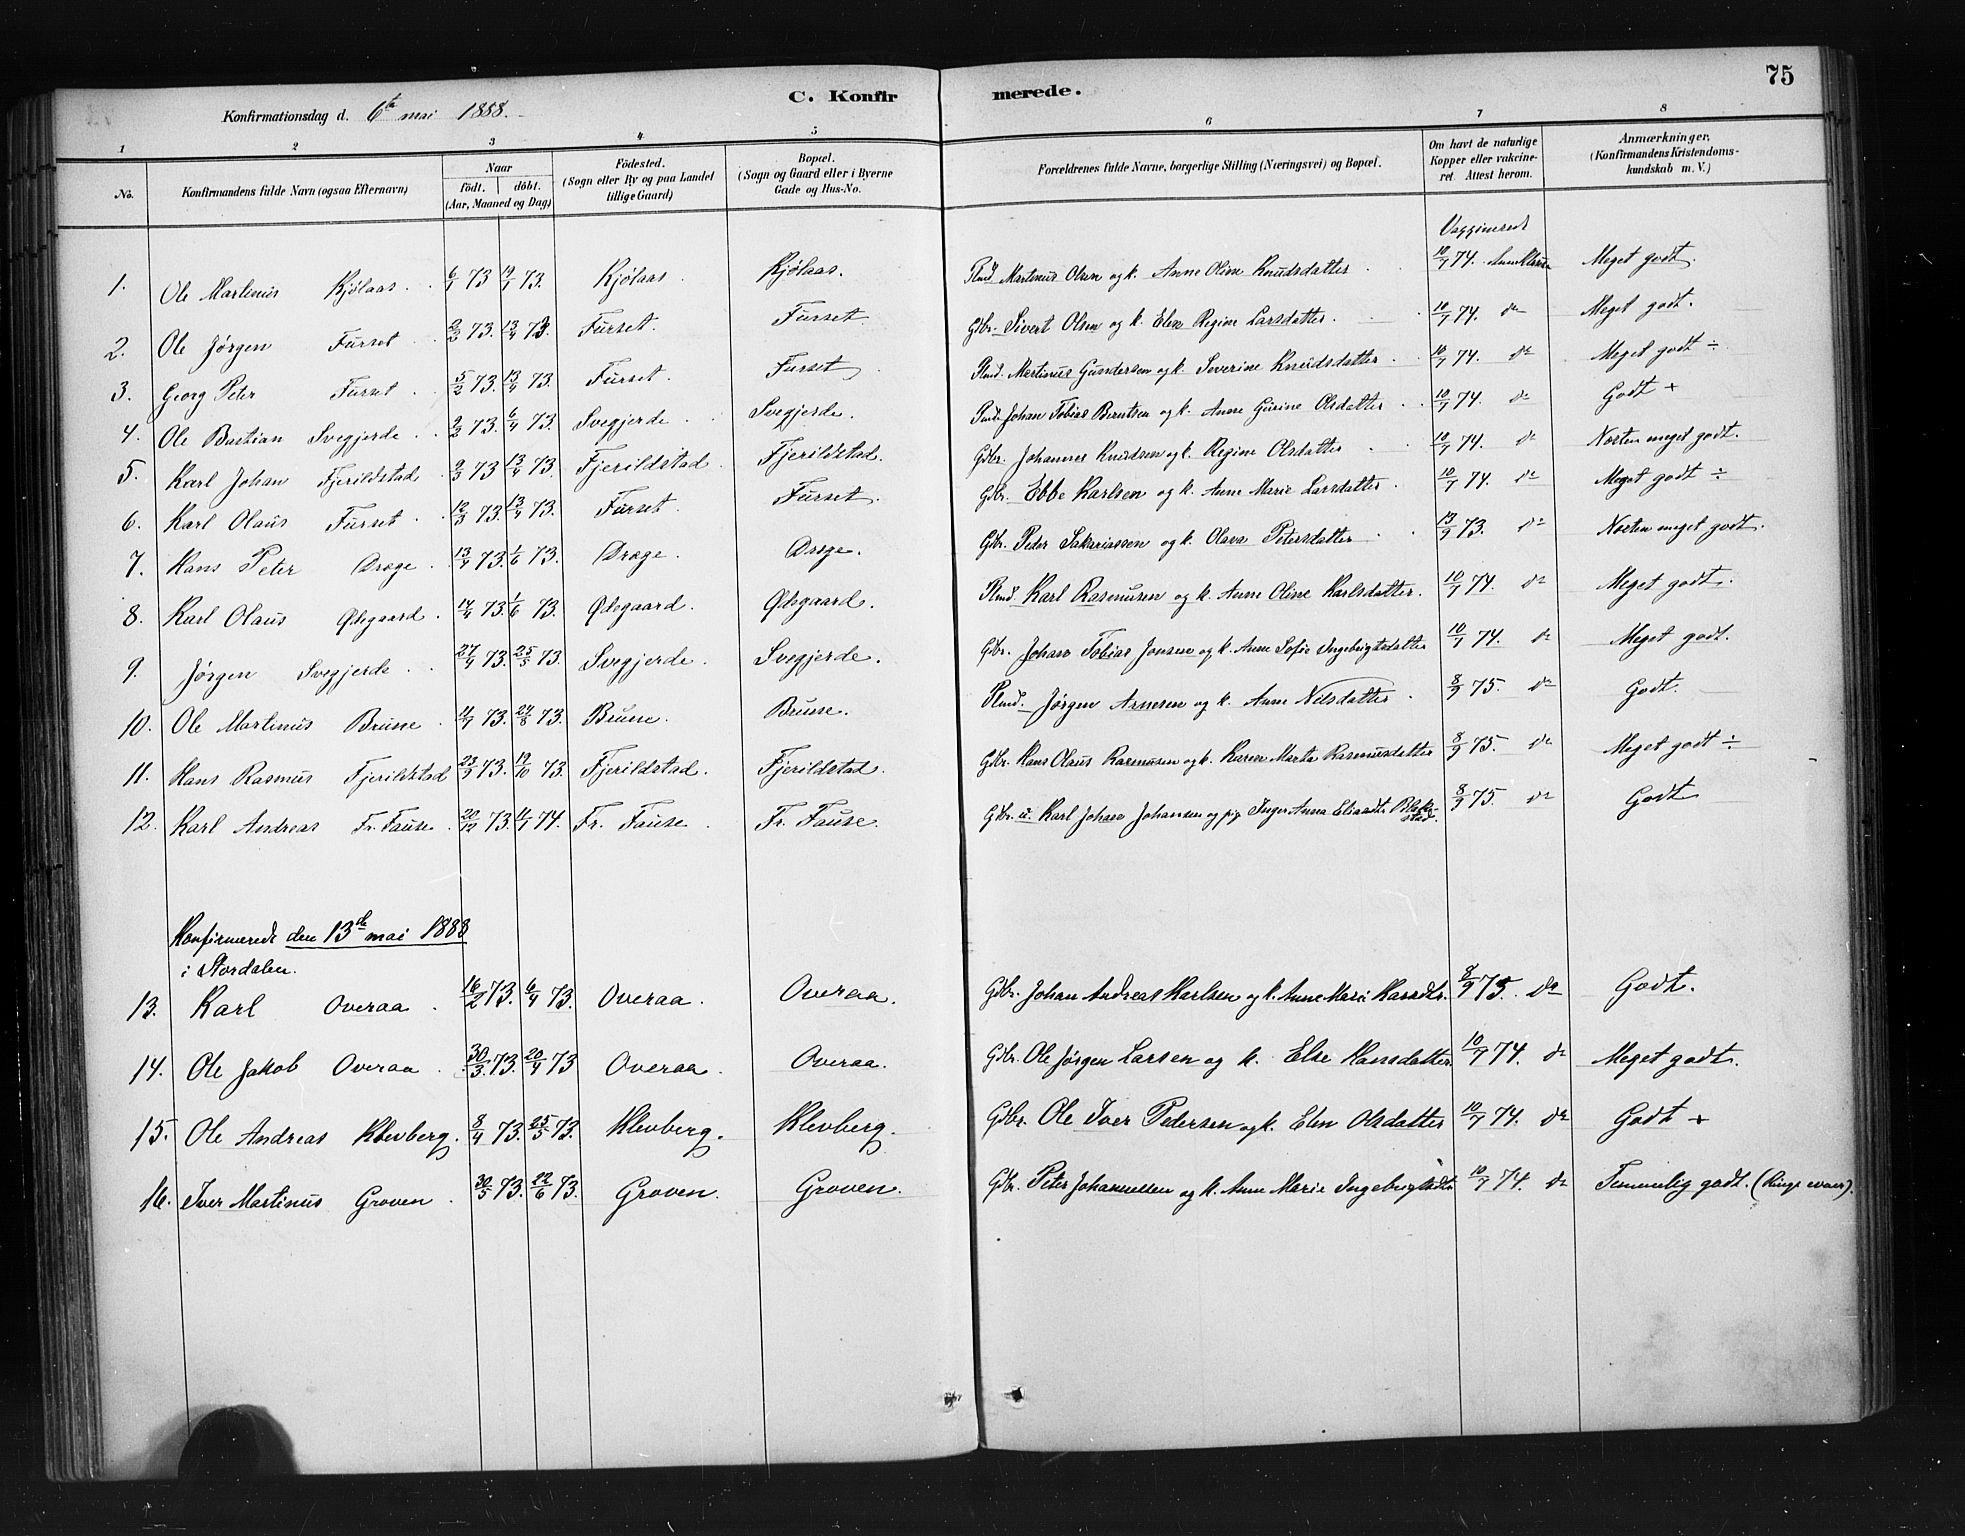 75
C. Konfirmerede.
Konfirmationsdag d. 6te mai 1888.
1 2 3 4 5 6 7 8
No. Konfirmandens fulde Navn (ogsaa Efternavn) Naar födt. döbt. (Aar, Maaned og Dag) Födested. (Sogn eller By og paa Landet tillige Gaard) Bopæl. (Sogn og Gaard eller i Byerne Gade og Hus-No. Forældrenes fulde Navne, borgerlige Stilling (Næringsvei) og Bopæl. Om havt de naturlige Kopper eller vakcineret. Attest herom. Anmærkninger. (Konfirmandens Kristendomskundskab m. V.)
Vaggineret
1. Ole Martinus Kjölaas. 6/1 73 19/1 73. Kjölaas. Kjölaas. Plmd. Martinus Olsen og k. Anne Oline Knudsdatter. 10/7 74. Meget godt.
2. Ole Jörgen Furset 2/2 73. 13/4 73. Furset. Furset. Gdbr. Sivert Olsen og k. Elen Regine Larsdatter. 10/7 74. do Meget godt.
3. Georg Peter Furset. 5/2 73. 13/4 73. Furset. Furset. Plmd. Martinus Gundersen og k. Severine Knudsdatter. 10/7 74. do Meget godt ÷
4. Ole Bastian Svegjerde. 2/2 73. 6/4 73. Svegjerde. Svegjerde. Plmd. Johan Tobias Berntsen og k. Anne Gurine Olsdatter. 10/7 74. do Godt +
5. Karl Johan Fjerildstad. 2/3 73 13/4 73. Fjerildstad. Fjerildstad. Gdbr. Johannes Knudsen og k. Regine Olsdatter. 10/7 74. do Næsten meget godt.
6. Karl Olaus Furset. 12/3 73. 13/4 73. Furset. Furset. Gdbr. Ebbe Karlsen og k. Anne Marie Larsdatter. 10/7 74. do Meget godt ÷
7. Hans Peter Dræge. 13/4 73. 1/6 73. Dræge. Dræge. Gdbr. Peder Sakariassen og k. Olava Petersdatter. 13/9 73. do Næsten meget godt.
8. Karl Olaus Ödegaard. 14/4 73. 1/6 73. Ödegaard. Ödegaard. Plmd. Karl Rasmusen og k. Anne Oline Karlsdatter. 10/7 74. do Meget godt.
9. Jörgen Svegjerde. 27/4 73. 25/5 73. Svegjerde. Svegjerde. Gdbr. Johan Tobias Jonsen og k. Anne Sofie Ingebrigtsdatter 10/7 74. do Meget godt.
10. Ole Martinus Brune 11/7 73. 24/8 73. Brune. Brune. Plmd. Jörgen Arnesen og k. Anne Nilsdatter. 8/9 75. do Godt.
11. Hans Rasmus Fjerildstad 23/9 73. 19/10 73. Fjerildstad. Fjerildstad. Gdbr. Hans Olaus Rasmusen og k. Karen Marta Rasmusdatter 8/9 75. do Meget godt ÷
12. Karl Andreas Fr. Fause. 20/12 73. 11/1 74. Fr. Fause. Fr. Fause. Gdbr. u. Karl Johan Johansen og pige Inger Anna Eliasdtr. 8/9 75. do Godt
Konfirmerede den 13de mai 1888
i Stordalen.
13. Karl Overaa. 16/2 73. 6/4 73. Overaa. Overaa. Gdbr. Johan Andreas Karlsen og k. Anne Marie Hansdtr. 8/9 75. do Godt.
14. Ole Jakob Overaa. 30/3 73. 20/4 73 Overaa. Overaa. Gdbr. Ole Jörgen Larsen og k. Else Hansdatter 10/7 74. do Meget godt.
15. Ole Andreas Klevberg. 8/4 73. 25/5 73. Klevberg. Klevberg. Gdbr. Ole Iver Pedersen og k. Elen Olsdatter 10/7 74. do Godt +
16. Iver Martinus Groven. 30/5 73. 22/6 73. Groven. Groven. Gdbr. Peter Johannessen og k. Anne Marie Ingebrigtsdtr. 10/7 74. do Temmelig godt.